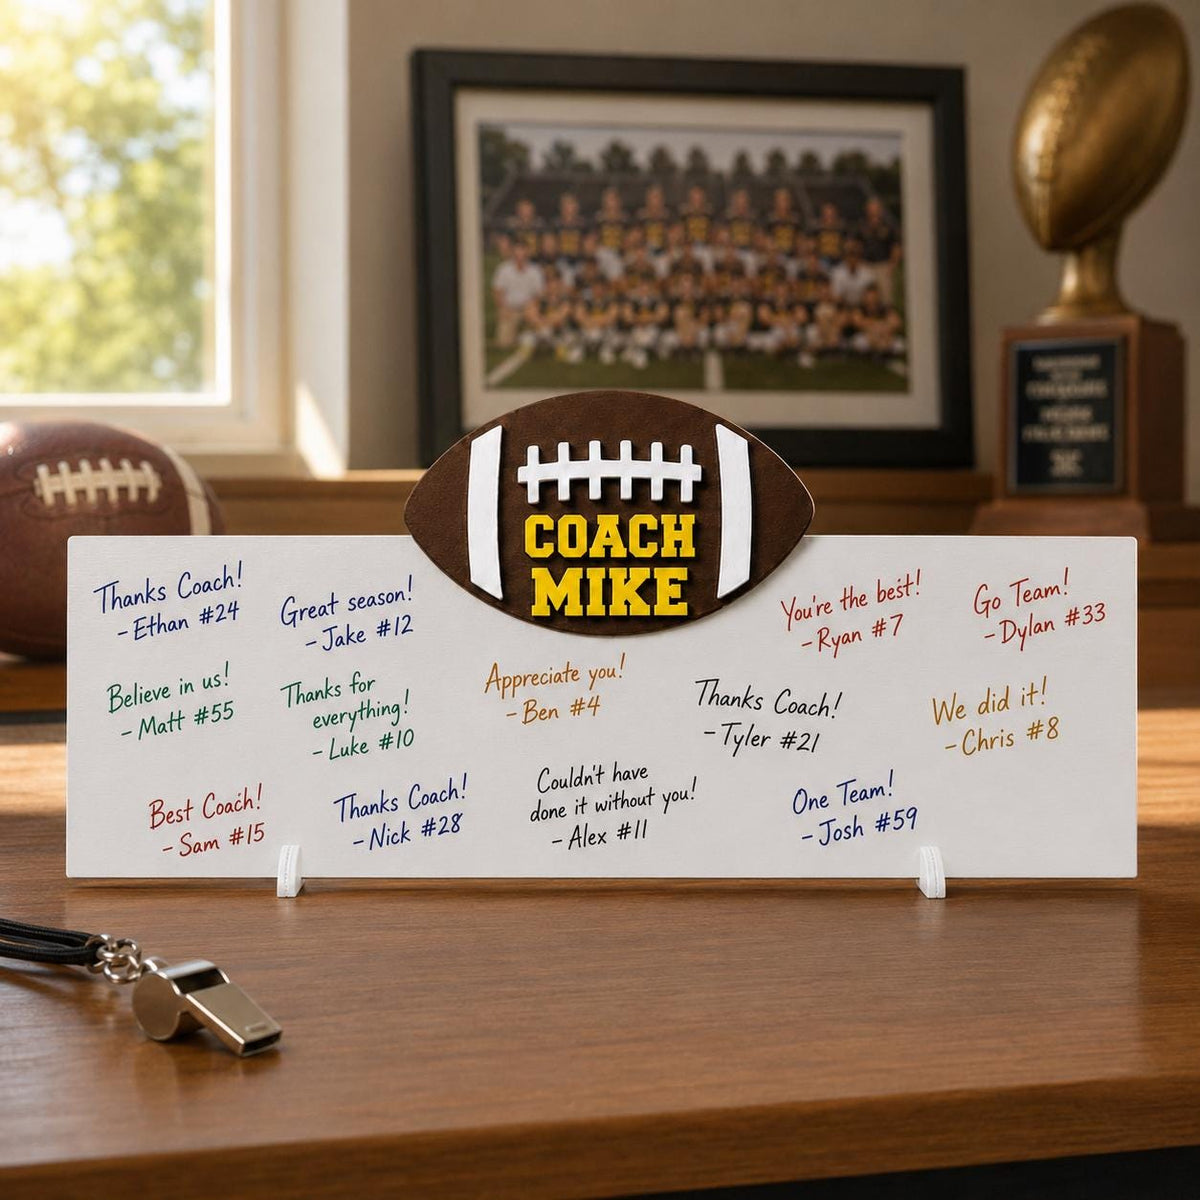 COACH
MIKE
Thanks Coach!
- Ethan #24
Great season!
- Jake #12
You're the best!
- Ryan #7
Go Team!
- Dylan #33
Believe in us!
- Matt #55
Thanks for
everything!
- Luke #10
Appreciate you!
- Ben #4
Thanks Coach!
- Tyler #21
We did it!
- Chris #8
Best Coach!
- Sam #15
Thanks Coach!
- Nick #28
Couldn't have
done it without you!
- Alex #11
One Team!
- Josh #59